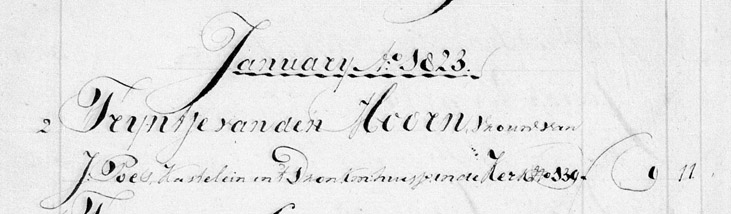 January Ao 1823.
2 Tryntje van den Hoorn, vrouw van
J. Poes, Kastelein in 't in de Kerk No 139. 9 11